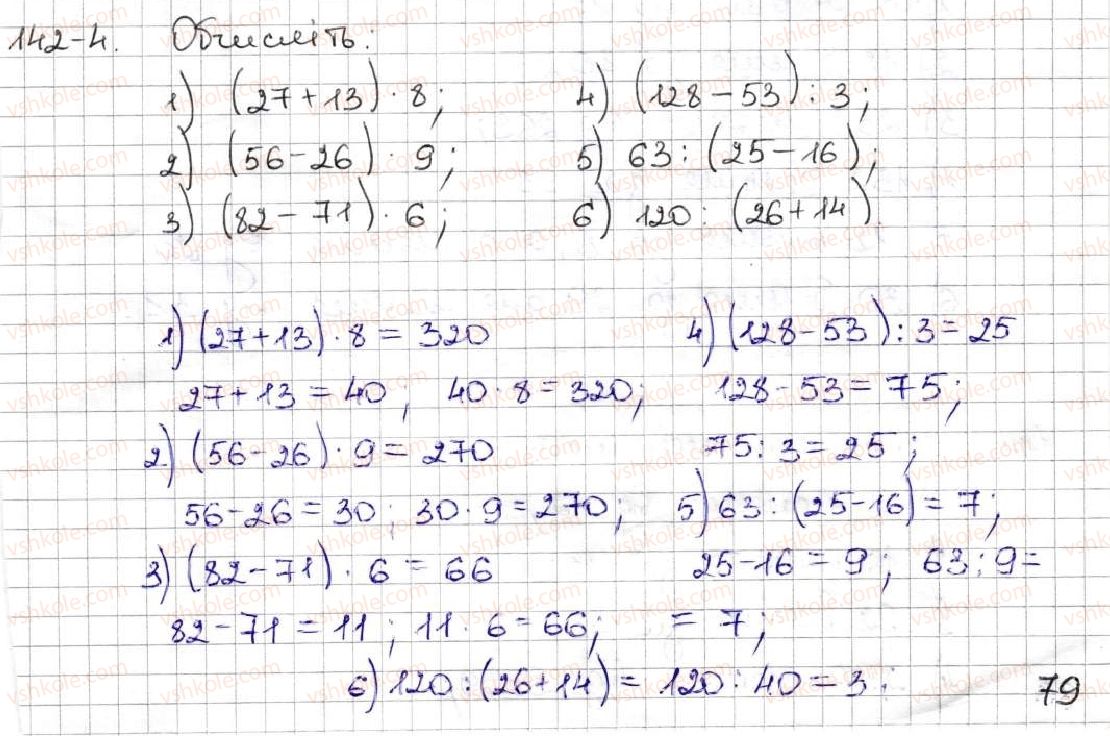 142-4. Обчисліть:
1) (27+13) · 8; 4) (128-53) : 3;
2) (56-26) · 9; 5) 63 : (25-16);
3) (82-71) · 6; 6) 120 : (26+14).
1) (27+13) · 8 = 320 4) (128-53) : 3 = 25
27+13 = 40; 40 · 8 = 320; 128-53 = 75;
2) (56-26) · 9 = 270 75 : 3 = 25;
56-26 = 30; 30 · 9 = 270; 5) 63 : (25-16) = 7;
3) (82-71) · 6 = 66 25-16 = 9; 63 : 9 =
82-71 = 11; 11 · 6 = 66; = 7;
6) 120 : (26+14) = 120 : 40 = 3; 79
vshkole.com